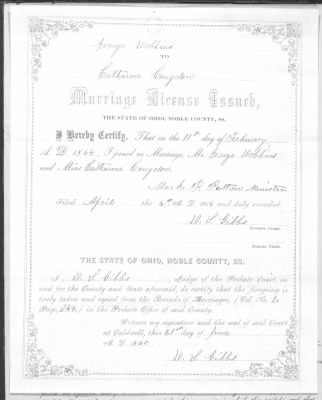 George Robbins
TO
Catharine Congdon
Marriage License Issued,
THE STATE OF OHIO, NOBLE COUNTY, SS.
I Hereby Certify, That on the 11th day of February
A. D. 1864, I joined in Marriage, Mr. George Robbins
and Miss Catharine Congdon
Mark R Patton Minister
Filed April the 6th A. D. 1864 and duly recorded.
W. S. Gibbs
Probate Judge.
Deputy Clerk.
THE STATE OF OHIO, NOBLE COUNTY, SS.
I, W S Gibbs Judge of the Probate Court, in
and for the County and State aforesaid, do certify that the foregoing is
truly taken and copied from the Records of Marriages, (Vol. No. 2
Page, ) in the Probate Office of said County.
Witness my signature and the seal of said Court
at Caldwell, this 21st day of June
A. D. 1865
W. S. Gibbs
Judge.